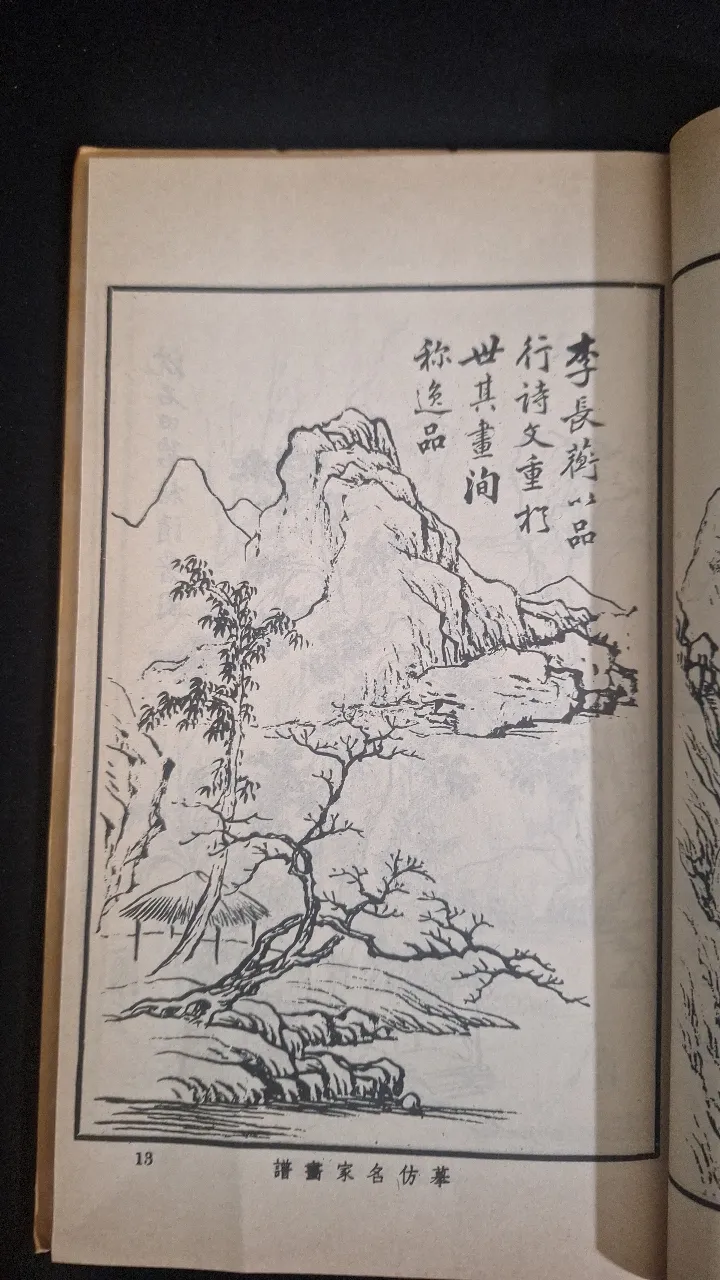 李長蘅以品
行诗文重於
世其畫洵
称逸品
13
摹仿名家畵譜